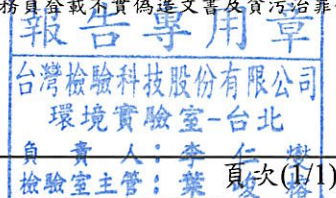 務員登載不實偽造文書及貪污治罪
報告專用章
台灣檢驗科技股份有限公司
環境實驗室-台北
負責人：李仁燮
頁次(1/1)
檢驗室主管：葉